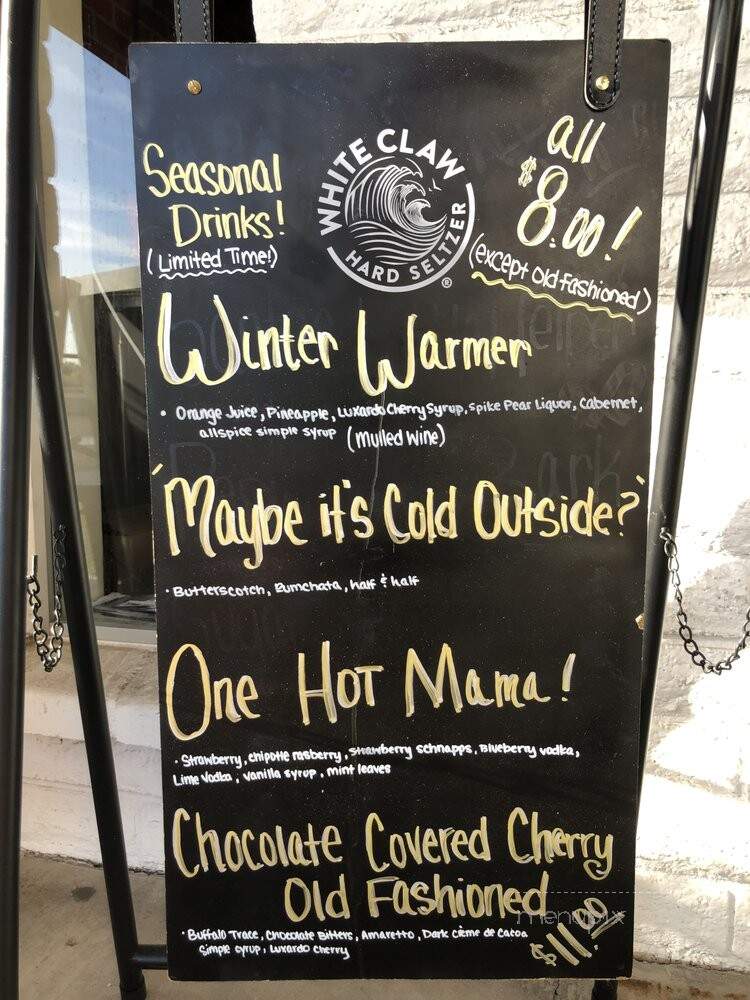 Seasonal
Drinks!
(Limited Time!)
WHITE CLAW
HARD SELTZER
®
all
$8.00!
(except Old Fashioned)
Winter Warmer
• Orange Juice, Pineapple, Luxardo Cherry Syrup, Spike Pear Liquor, Cabernet,
allspice simple syrup (Mulled Wine)
"Maybe it's Cold Outside?"
• Butterscotch, Rumchata, half & half
One Hot Mama!
• Strawberry, chipotle rasberry, strawberry schnapps, Blueberry vodka,
Lime Vodka, vanilla syrup, mint leaves
Chocolate Covered Cherry
Old Fashioned
• Buffalo Trace, Chocolate Bitters, Amaretto, Dark Crème de Cacoa
Simple syrup, Luxardo Cherry
$11.00!
menupix